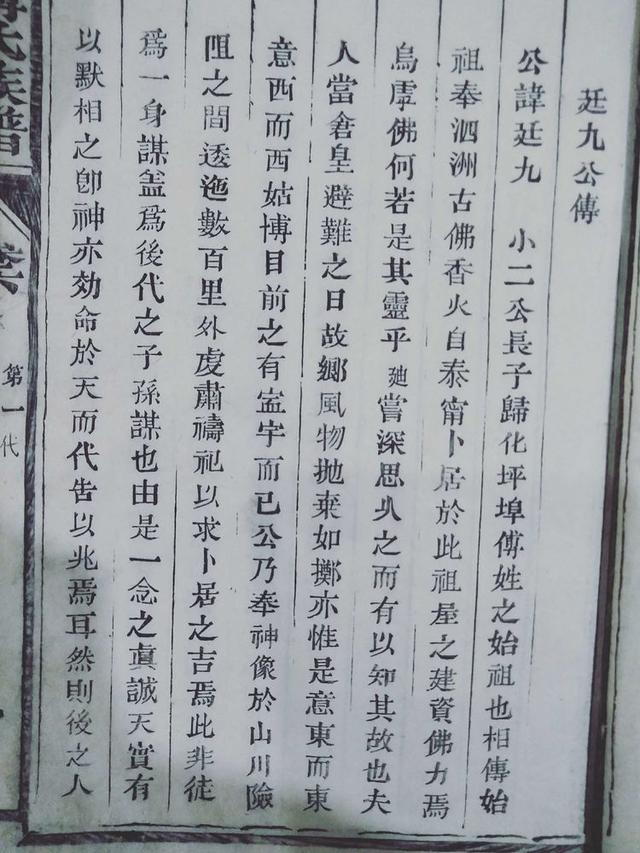 廷九公傳
公諱廷九　小二公長子歸化坪埠傅姓之始祖也相傳始
祖奉泗洲古佛香火自泰甯卜居於此祖屋之建資佛力焉
烏虖佛何若是其靈乎 嘗深思乆之而有以知其故也夫
人當倉皇避難之日故鄉風物抛棄如擲亦惟是意東而東
意西而西姑博目前之有室宇而已公乃奉神像於山川險
阻之間透迤數百里外虔肅禱祀以求卜居之吉焉此非徒
爲一身謀盖爲後代之子孫謀也由是一念之眞誠天實有
以默相之卽神亦効命於天而代告以兆焉耳然則後之人
氏族譜
第一代